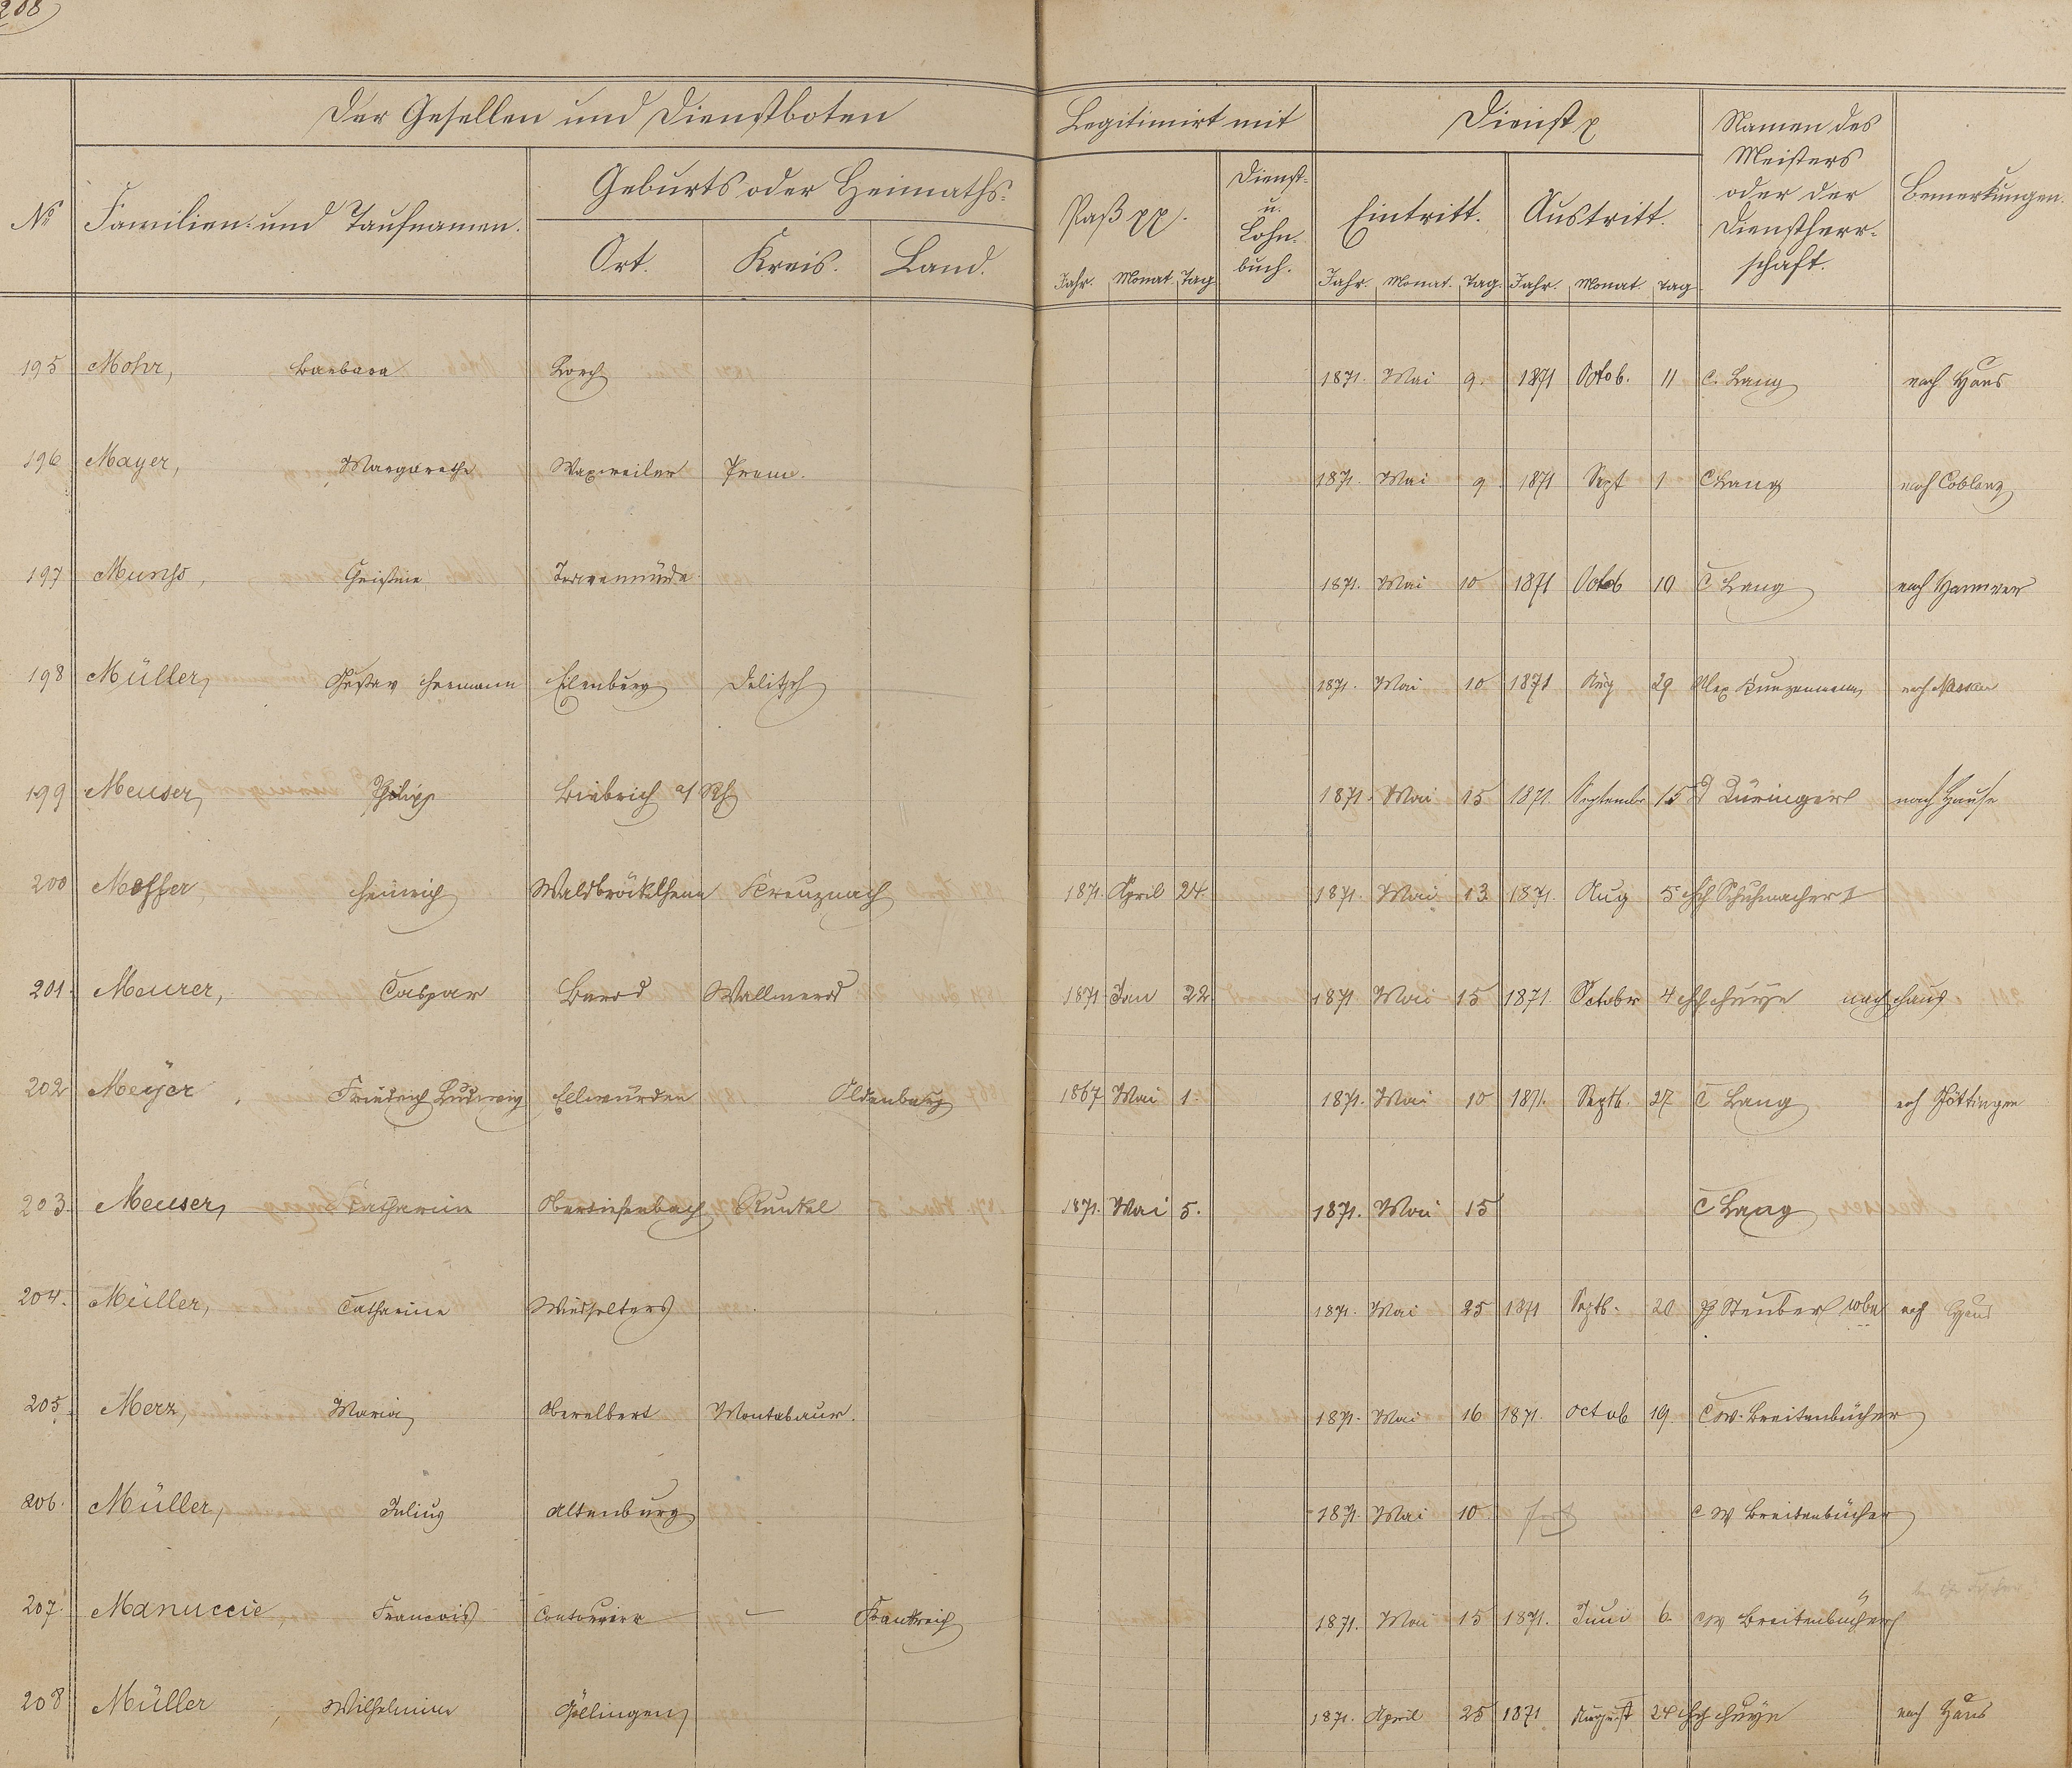 208
Der Gesellen und Dienstboten
Legitimirt mit
Dienst
Namen des Meisters oder der Dienstherr-schaft.
Bemerkungen.
No
Familien- und Taufnamen.
Geburts oder Heimaths-
Ort. Kreis. Land.
Paß pp.
Dienst- u. Lohn-buch.
Eintritt. Austritt.
Jahr. Monat. Tag Jahr. Monat. Tag. Jahr. Monat. Tag
195 Mohr, Barbara Lorch 1871. Mai 9. 1871 Octob. 11 C. Lang nach Haus
196 Mayer, Margarethe Waxweiler Prüm. 1871. Mai 9 1871 Sept 1 C Lang nach Coblenz
197 Christine 1871. Mai 10 1871 Octob 10 C Lang nach Hannover
198 Müller, Gustav Hermann Eilenburg Delitzsch 1871. Mai 10 1871 Aug 29 Alex nach
199 Meuser, Philipp Biebrich a/ Rh 1871. Mai 15 1871. September 15 nach Hause
200 Heinrich Kreuznach 1871. April 24. 1871. Mai 13. 1871. Aug 5 Hch Schuhmacher
201. Meurer, Caspar Berod Wallmerod 1871 Jan 22 1871 Mai 15 1871. October 4 Hch Huye nach Haus
202 Meyer, Friedrich Ludwig Ellwürden Oldenburg 1867 Mai 1. 1871. Mai 10 1871. Septb. 27 C Lang nach Göttingen
203 Meuser, Catharine Obertiefenbach Runkel 1871. Mai 5. 1871. Mai 15 C Lang
204. Müller, Catharine Niederselters 1871. Mai 25 1871 Septb. 20 nach Haus
205. Merz, Maria Oberelbert Montabaur. 1871. Mai 16 1871. Octob 19 C W. Breitenbücher
206. Müller, Julius Altenburg 1871. Mai 10 fort C W Breitenbücher
207. Manuccie, Francois — Frankreich 1871. Mai 15 1871. Juni 6. CW Breitenbücher
208 Müller, Wilhelmine Göllingen 1871. April 25 1871 August 24 Hch Huye nach Haus